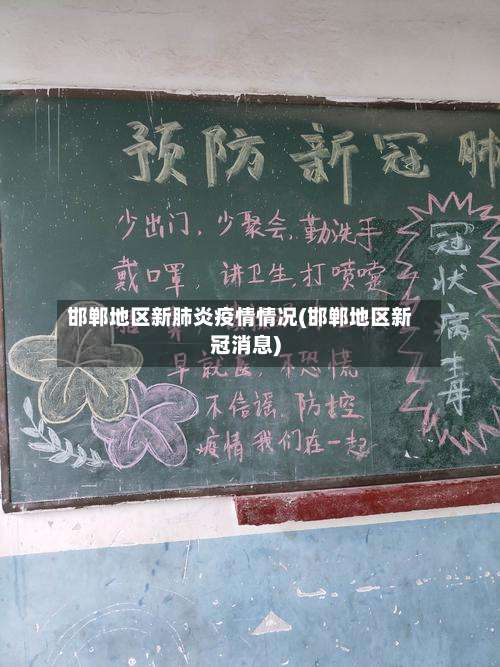 预防新冠肺
少出门，少聚会，勤洗手
戴口罩，讲卫生，打喷嚏
邯郸地区新肺炎疫情情况(邯郸地区新
冠消息)
早就医，不恐慌
不信谣，防控
疫情我们在一起
冠状病毒